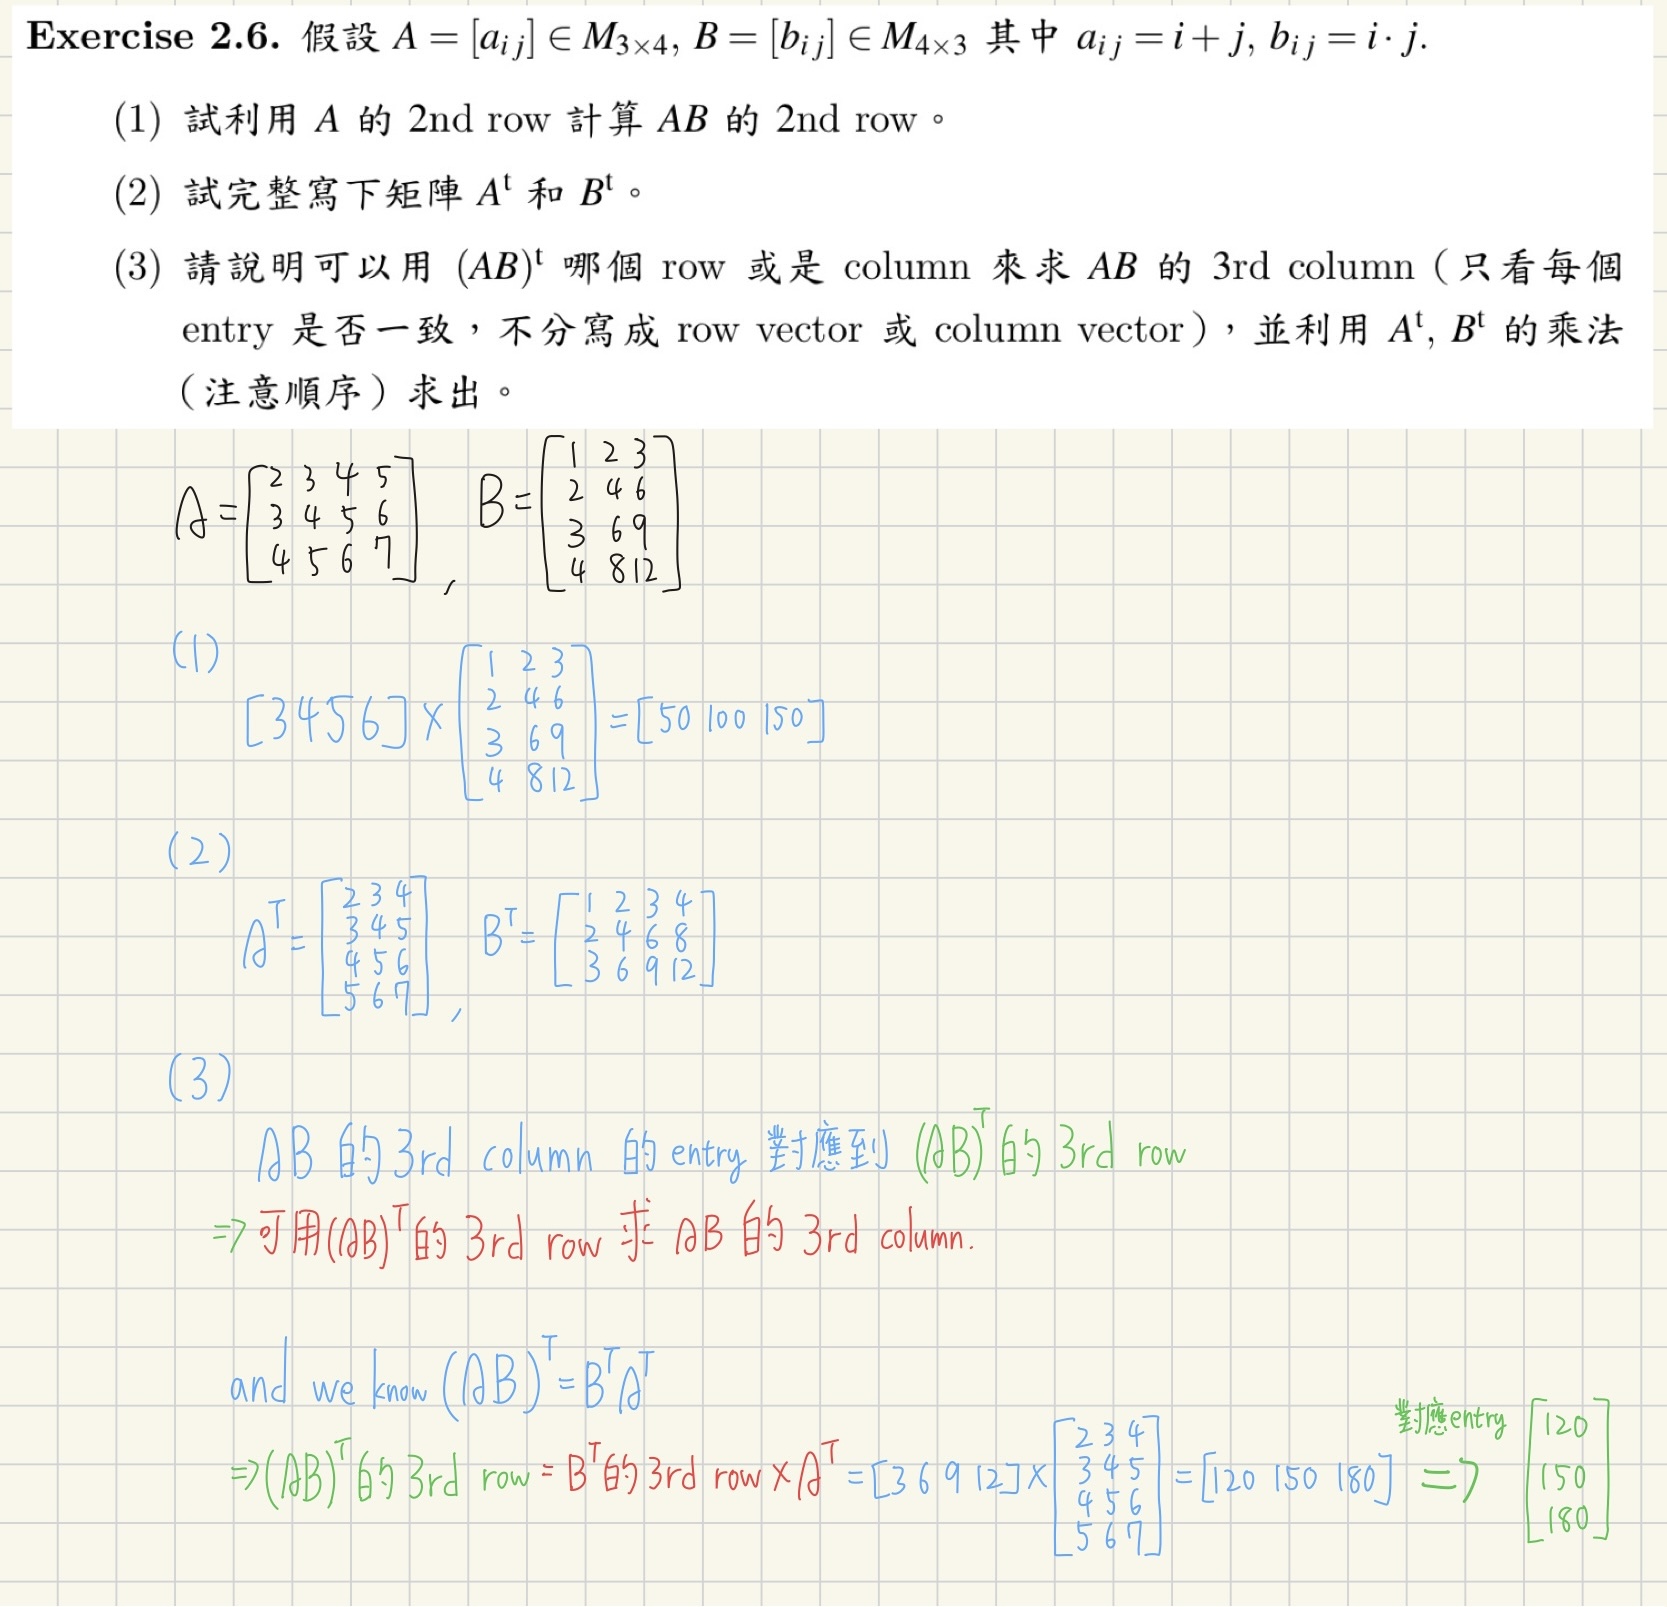 Exercise 2.6. 假設 A = [a_{ij}] ∈ M_{3×4}, B = [b_{ij}] ∈ M_{4×3} 其中 a_{ij} = i + j, b_{ij} = i · j.
(1) 試利用 A 的 2nd row 計算 AB 的 2nd row。
(2) 試完整寫下矩陣 A^t 和 B^t。
(3) 請說明可以用 (AB)^t 哪個 row 或是 column 來求 AB 的 3rd column（只看每個
entry 是否一致，不分寫成 row vector 或 column vector），並利用 A^t, B^t 的乘法
（注意順序）求出。
A = [2 3 4 5; 3 4 5 6; 4 5 6 7], B = [1 2 3; 2 4 6; 3 6 9; 4 8 12]
(1)
[3 4 5 6] × [1 2 3; 2 4 6; 3 6 9; 4 8 12] = [50 100 150]
(2)
A^T = [2 3 4; 3 4 5; 4 5 6; 5 6 7], B^T = [1 2 3 4; 2 4 6 8; 3 6 9 12]
(3)
AB 的 3rd column 的 entry 對應到 (AB)^T 的 3rd row
=> 可用 (AB)^T 的 3rd row 求 AB 的 3rd column.
and we know (AB)^T = B^T A^T
=> (AB)^T 的 3rd row = B^T 的 3rd row × A^T = [3 6 9 12] × [2 3 4; 3 4 5; 4 5 6; 5 6 7] = [120 150 180] 對應 entry => [120; 150; 180]